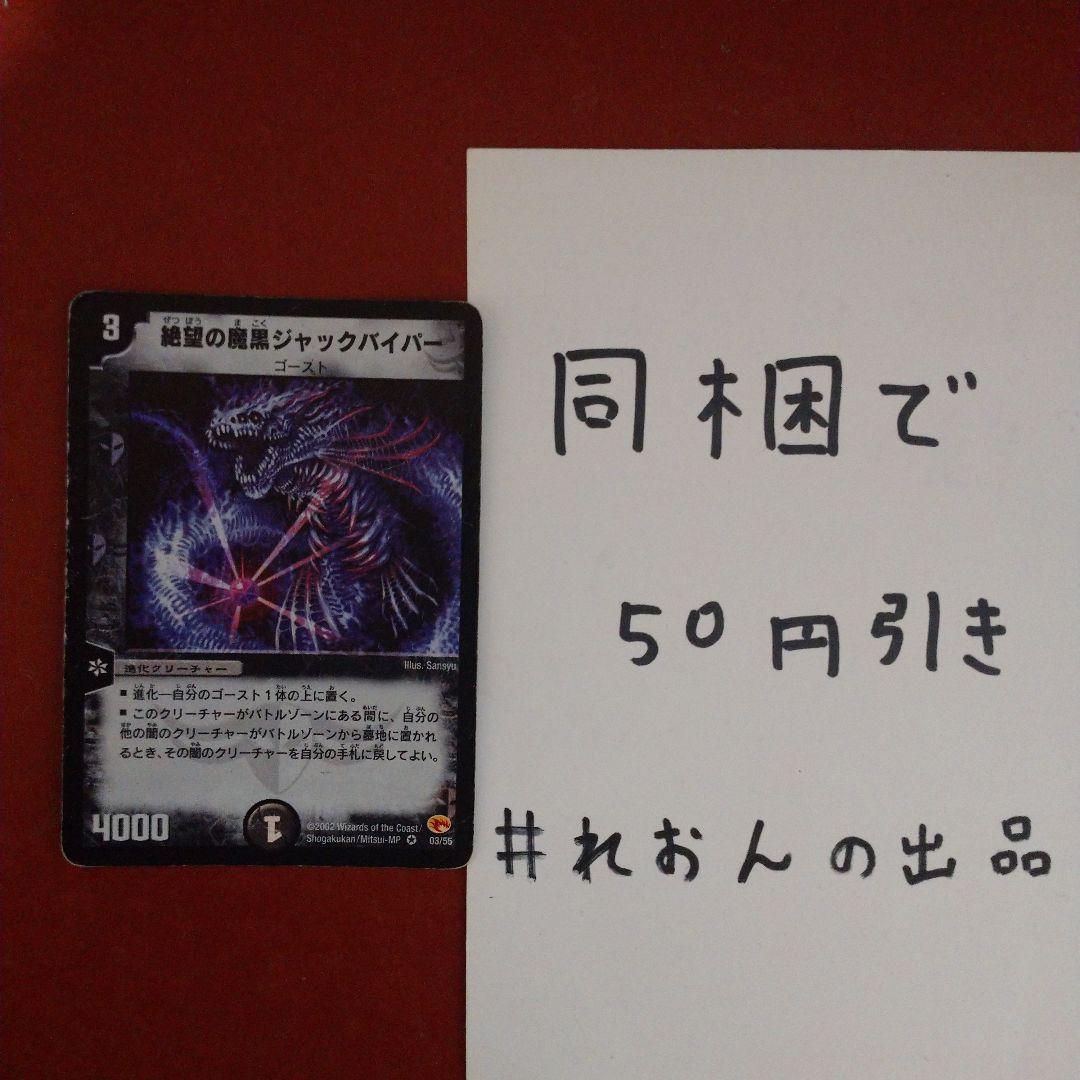 3
絶望の魔黒ジャックバイパー
ゴースト
進化クリーチャー
Illus. Sansyu
■ 進化―自分のゴースト1体の上に置く。
■ このクリーチャーがバトルゾーンにある間に、自分の
他の闇のクリーチャーがバトルゾーンから墓地に置かれ
るとき、その闇のクリーチャーを自分の手札に戻してよい。
4000
1
©2002 Wizards of the Coast/
Shogakukan/Mitsui-MP
03/55
同梱で
50円引き
#れおんの出品